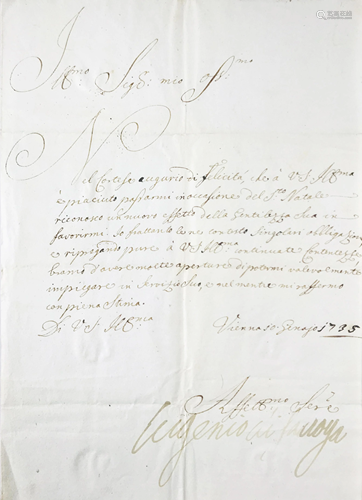 Ill.mo Sig.r mio oss.mo
Nel Cortese augurio di felicità, che à V.S. Ill.ma
è piaciuto passarmi in occasione del S.to Natale
riconosco un nuovo effetto della Gentilezza Sua in
favorirmi. Io frattanto le ne contesto singolari obbligazioni
e ripregando pure à V.S. Ill.ma continuate Contentezze
bramo d'avere molte aperture di potermi valevolmente
impiegare in Servizio Suo, e nel mentre mi raffermo
con piena Stima.
Di V.S. Ill.ma
Vienna 10 Genajo 1735
Affett.mo Ser.e
Eugenio di Savoya